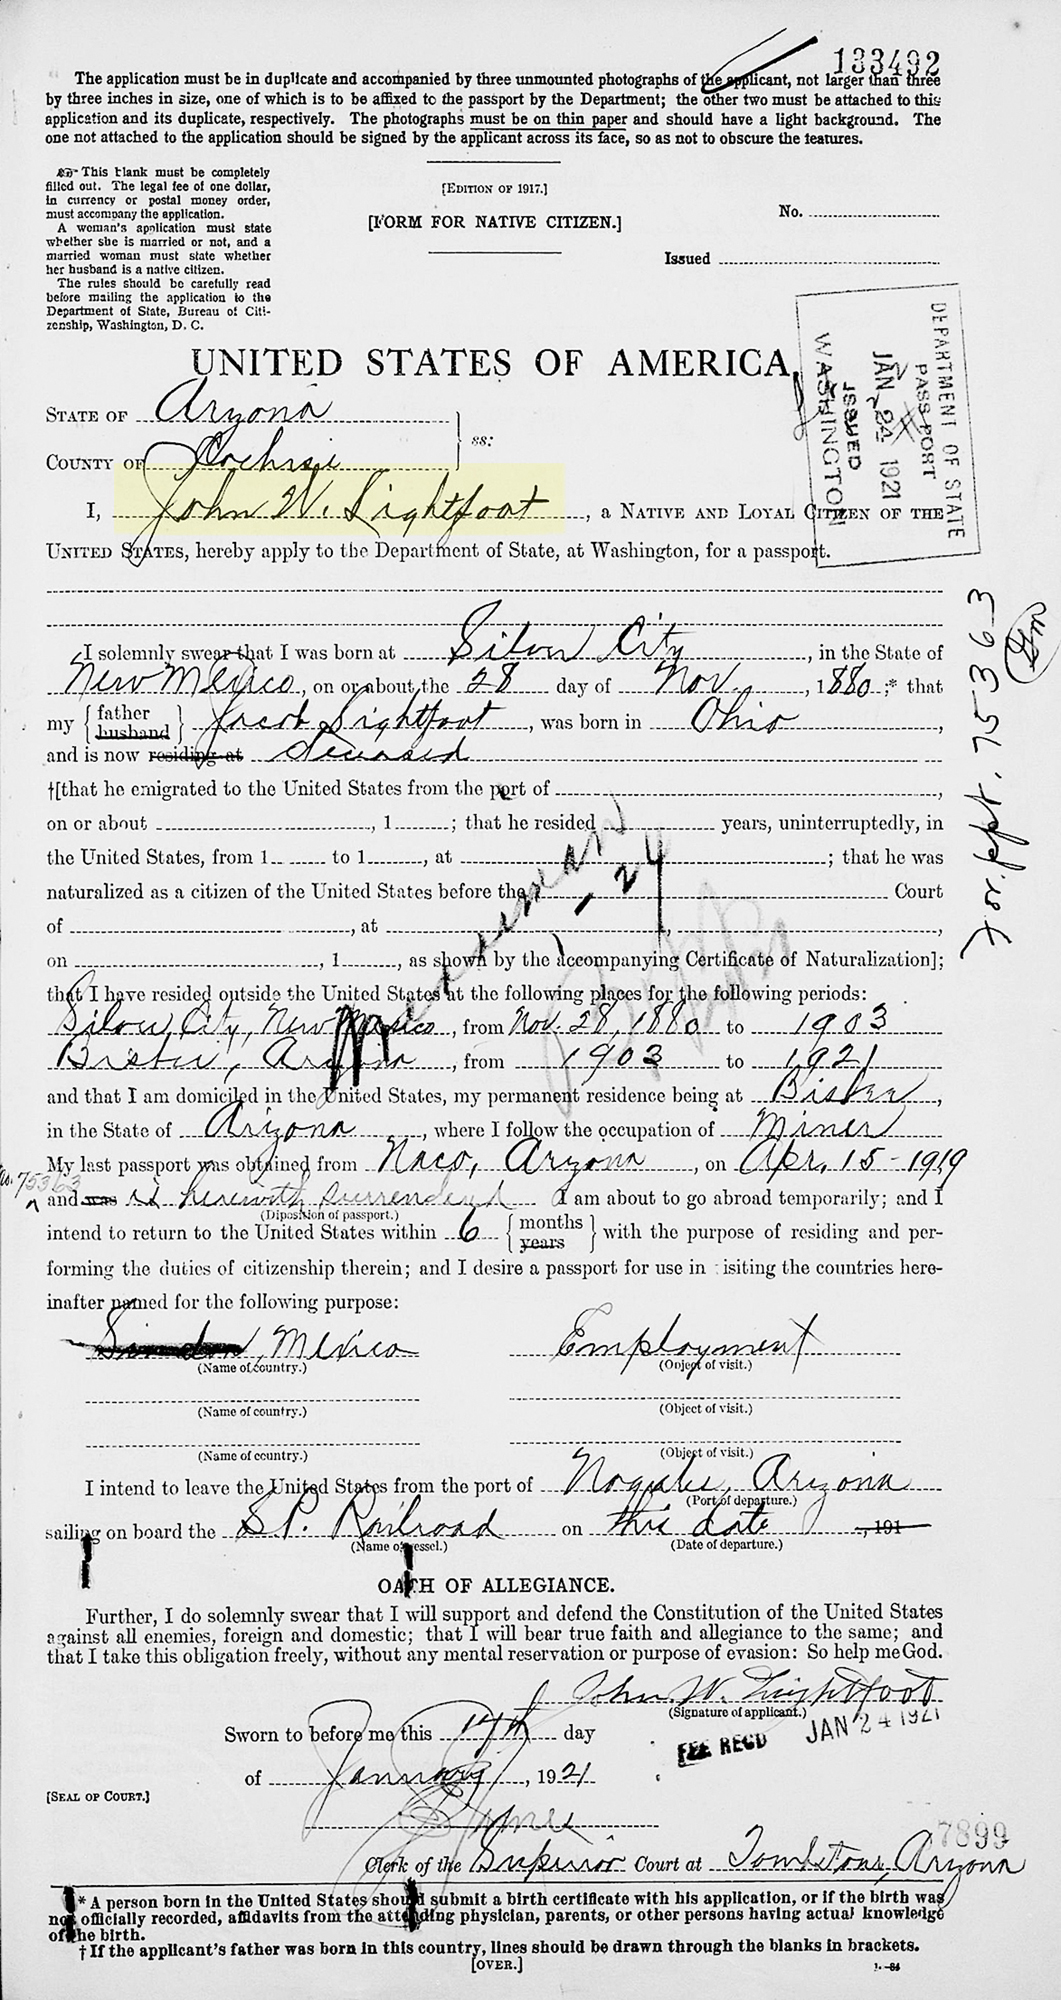 133492
The application must be in duplicate and accompanied by three unmounted photographs of the applicant, not larger than three
by three inches in size, one of which is to be affixed to the passport by the Department; the other two must be attached to this
application and its duplicate, respectively. The photographs must be on thin paper and should have a light background. The
one not attached to the application should be signed by the applicant across its face, so as not to obscure the features.
This blank must be completely
filled out. The legal fee of one dollar,
in currency or postal money order,
must accompany the application.
A woman's application must state
whether she is married or not, and a
married woman must state whether
her husband is a native citizen.
The rules should be carefully read
before mailing the application to the
Department of State, Bureau of Citi-
zenship, Washington, D. C.
[EDITION OF 1917.]
[FORM FOR NATIVE CITIZEN.]
No.
Issued
DEPARTMENT OF STATE
PASSPORT
JAN 24 1921
ISSUED
WASHINGTON
UNITED STATES OF AMERICA,
STATE OF Aryona
COUNTY OF Cochise
ss:
I, John W. Lightfoot, a NATIVE AND LOYAL CITIZEN OF THE
UNITED STATES, hereby apply to the Department of State, at Washington, for a passport.
For. ppt. 75363
I solemnly swear that I was born at Silver City, in the State of
New Mexico, on or about the 28 day of Nov., 1880;* that
my {father husband} Jacob Lightfoot, was born in Ohio,
and is now residing at deceased
†[that he emigrated to the United States from the port of ,
on or about , 1 ; that he resided years, uninterruptedly, in
the United States, from 1 to 1 , at ; that he was
naturalized as a citizen of the United States before the Court
of , at ,
on , 1 , as shown by the accompanying Certificate of Naturalization];
- 24
that I have resided outside the United States at the following places for the following periods:
Silver City, New Mexico, from Nov. 28, 1880 to 1903
Bisbee, Arizona, from 1903 to 1921
and that I am domiciled in the United States, my permanent residence being at Bisbee,
in the State of Arizona, where I follow the occupation of Miner
My last passport was obtained from Naco, Arizona, on Apr. 15 - 1919
No. 75363
and was is herewith surrenderd I am about to go abroad temporarily; and I
(Diposition of passport.)
intend to return to the United States within 6 {months years} with the purpose of residing and per-
forming the duties of citizenship therein; and I desire a passport for use in visiting the countries here-
inafter named for the following purpose:
Mexico Employment
(Name of country.) (Object of visit.)
(Name of country.) (Object of visit.)
(Name of country.) (Object of visit.)
I intend to leave the United States from the port of Nogales, Arizona
(Port of departure.)
sailing on board the S.P. Railroad on this date, 191
(Name of vessel.) (Date of departure.)
OATH OF ALLEGIANCE.
Further, I do solemnly swear that I will support and defend the Constitution of the United States
against all enemies, foreign and domestic; that I will bear true faith and allegiance to the same; and
that I take this obligation freely, without any mental reservation or purpose of evasion: So help me God.
John W. Lightfoot
(Signature of applicant.)
Sworn to before me this 14th day
FEE RECD JAN 24 1921
of January, 1921
[SEAL OF COURT.]
7899
Clerk of the Superior Court at Tombstone, Arizona
* A person born in the United States should submit a birth certificate with his application, or if the birth was
not officially recorded, affidavits from the attending physician, parents, or other persons having actual knowledge
of the birth.
† If the applicant's father was born in this country, lines should be drawn through the blanks in brackets.
[OVER.]